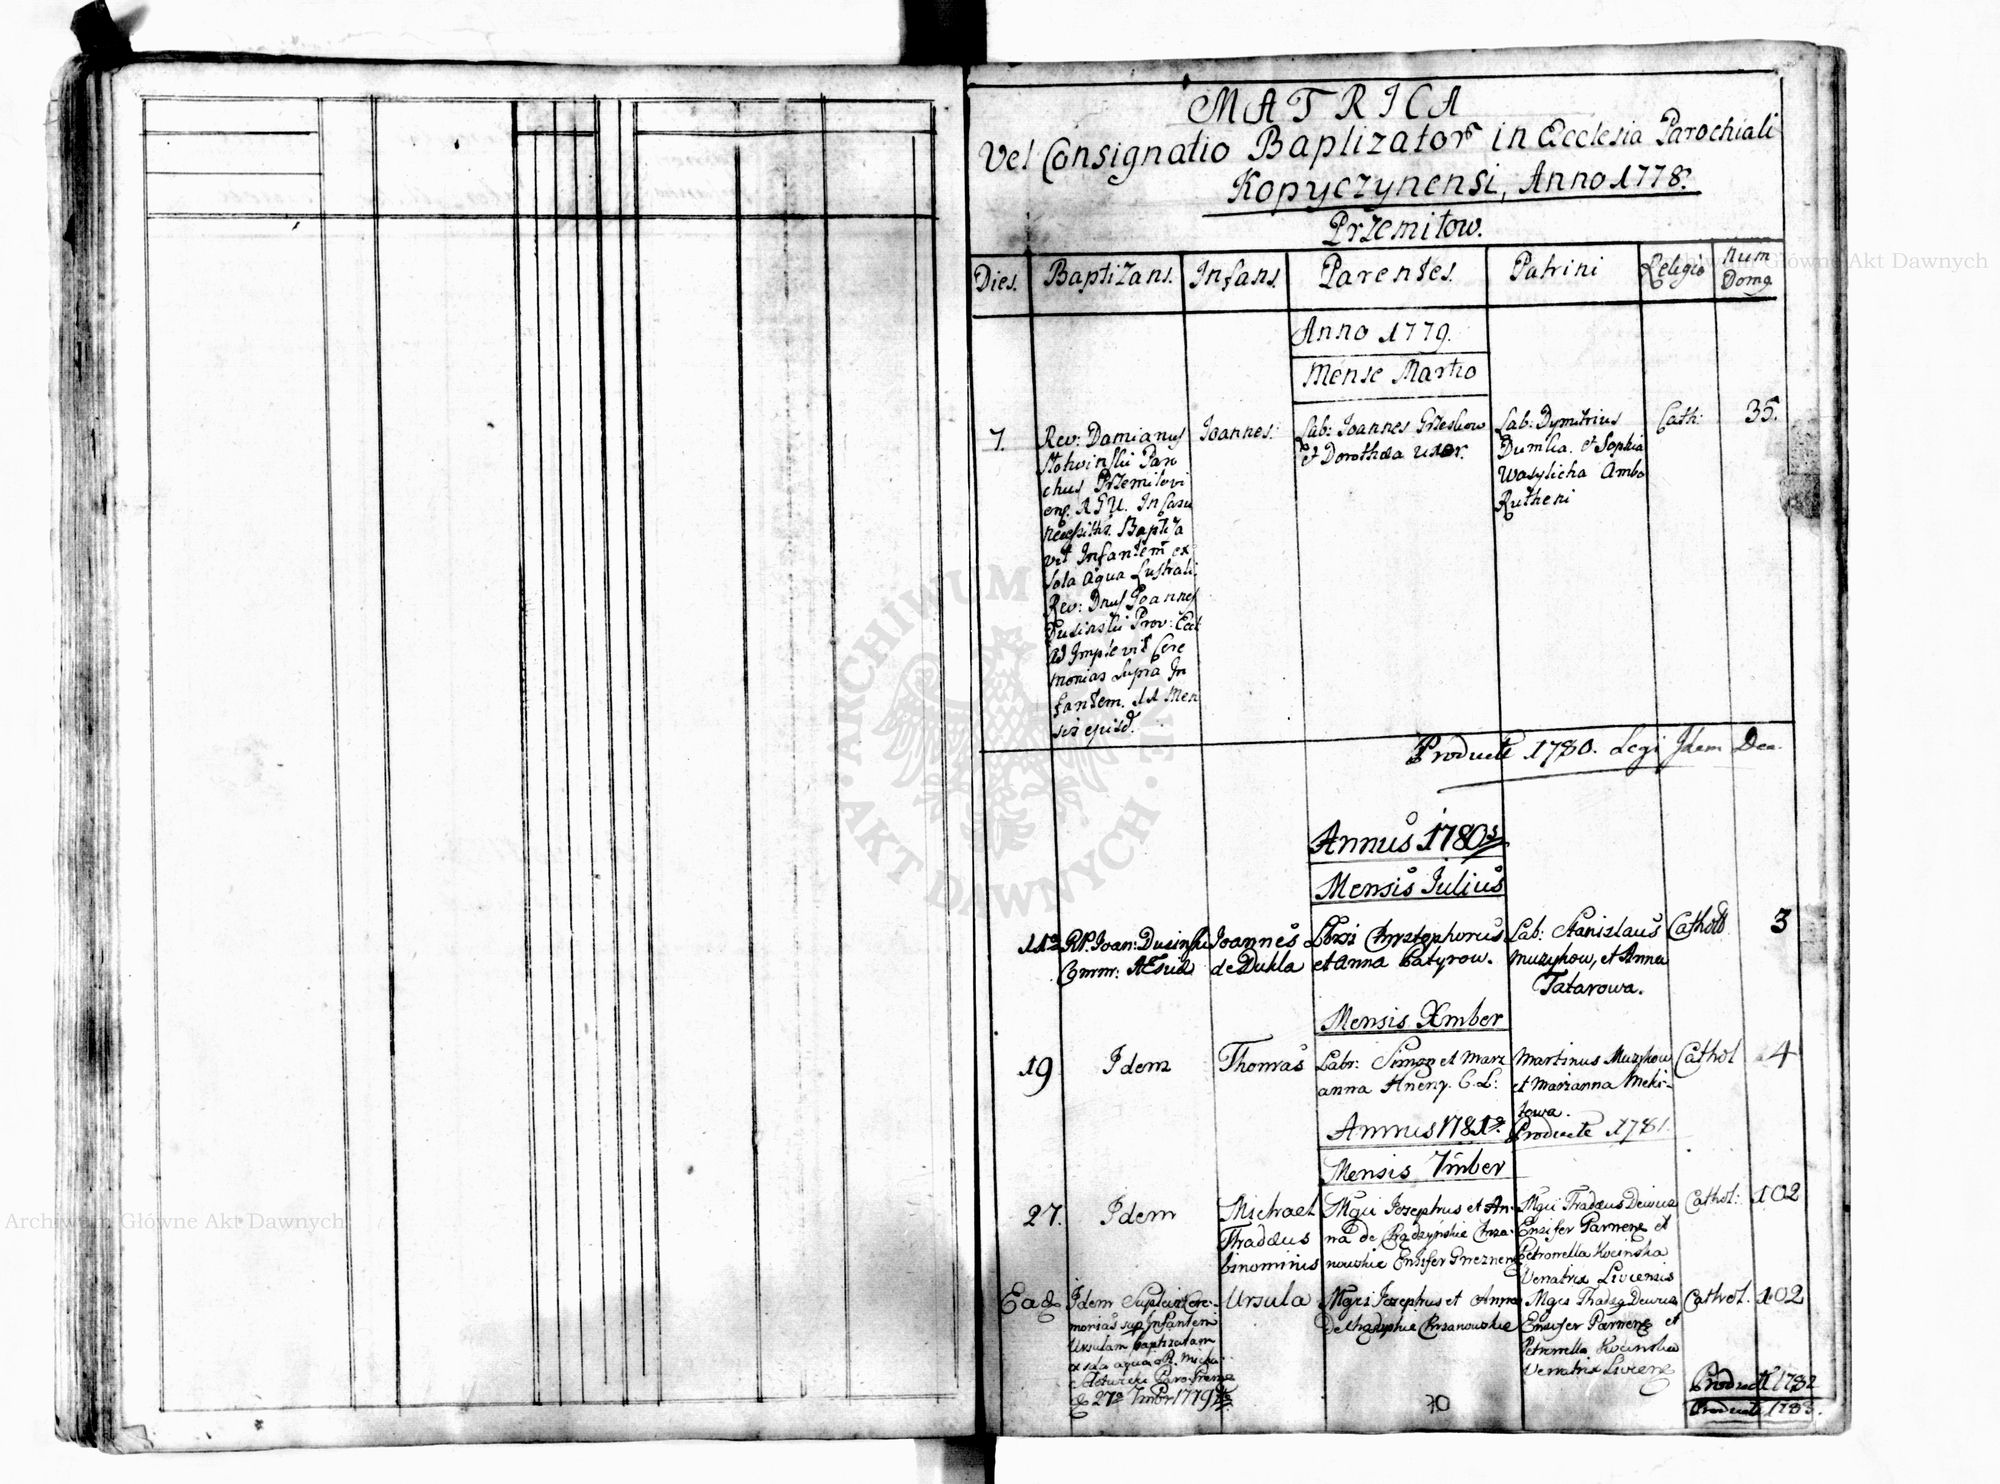 MATRICA
Vel Consignatio Baptizator in Ecclesia Parochiali
Kopyczynensi, Anno 1778.
Przemiłow.
Dies. Baptizans. Infans. Parentes. Patrini Religio Num Domq
Anno 1779.
Mense Martio
7. Rev: Damianus Joannes. Lab: Joannes Grzeskow Lab: Dymitrius Cath: 35.
et Dorothea uxor. Dumka. et Sophia
Wasylicha Ambo
Rutheni
Słotwinski Paro
chus Przemilovi
ens. R. G. U. In casu
necessitis. Baptiza
vit Infantem ex
sola aqua Lustrali.
Rev: Dnus Joannes
Dusinski Prov: Eccl
ad Implevit Cere
monias supra In
fantem. 11 Men
sis ejusd.
Producte 1780. Legi Idem Dea.
Annus 1780s
Mensis Julius
11a RP. Joan: Dusinski Joannes Christophorus Lab: Stanislaus Cathol 3
Comm: de Dukla et Anna Batyrow. Muzykow, et Anna
Tatarowa.
Mensis Xmber
19 Idem Thomas Labr: Simon et Mari Martinus Muzykow Cathol 4
anna Hneny. C. L: et Marianna Meki-
towa.
Annus 1781s. Producte 1781.
Mensis 7mber
27. Idem Michael Mgci Josephus et An- Mgci Thadæus Dewicz Cathol: 102
Thadæus na de Ensifer Parnens et
binominis nowskie Ensifer Petronella Kocinska
Venatrix Livensis
Ead Idem Suplevit Cere- Ursula Mgci Josephus et Anna Mgci Cathol. 102
monias sup Infantem Chrzanowskie Ensifer Parnens et
Ursulam baptizatam Petronella Kocinska
ex sola aqua a R. Micha Venatrix Livens
27a 7mbr 1779
Product 1782
Producte 1783.
70
ARCHIWUM GŁÓWNE AKT DAWNYCH
Archiwum Główne Akt Dawnych
Archiwum Główne Akt Dawnych